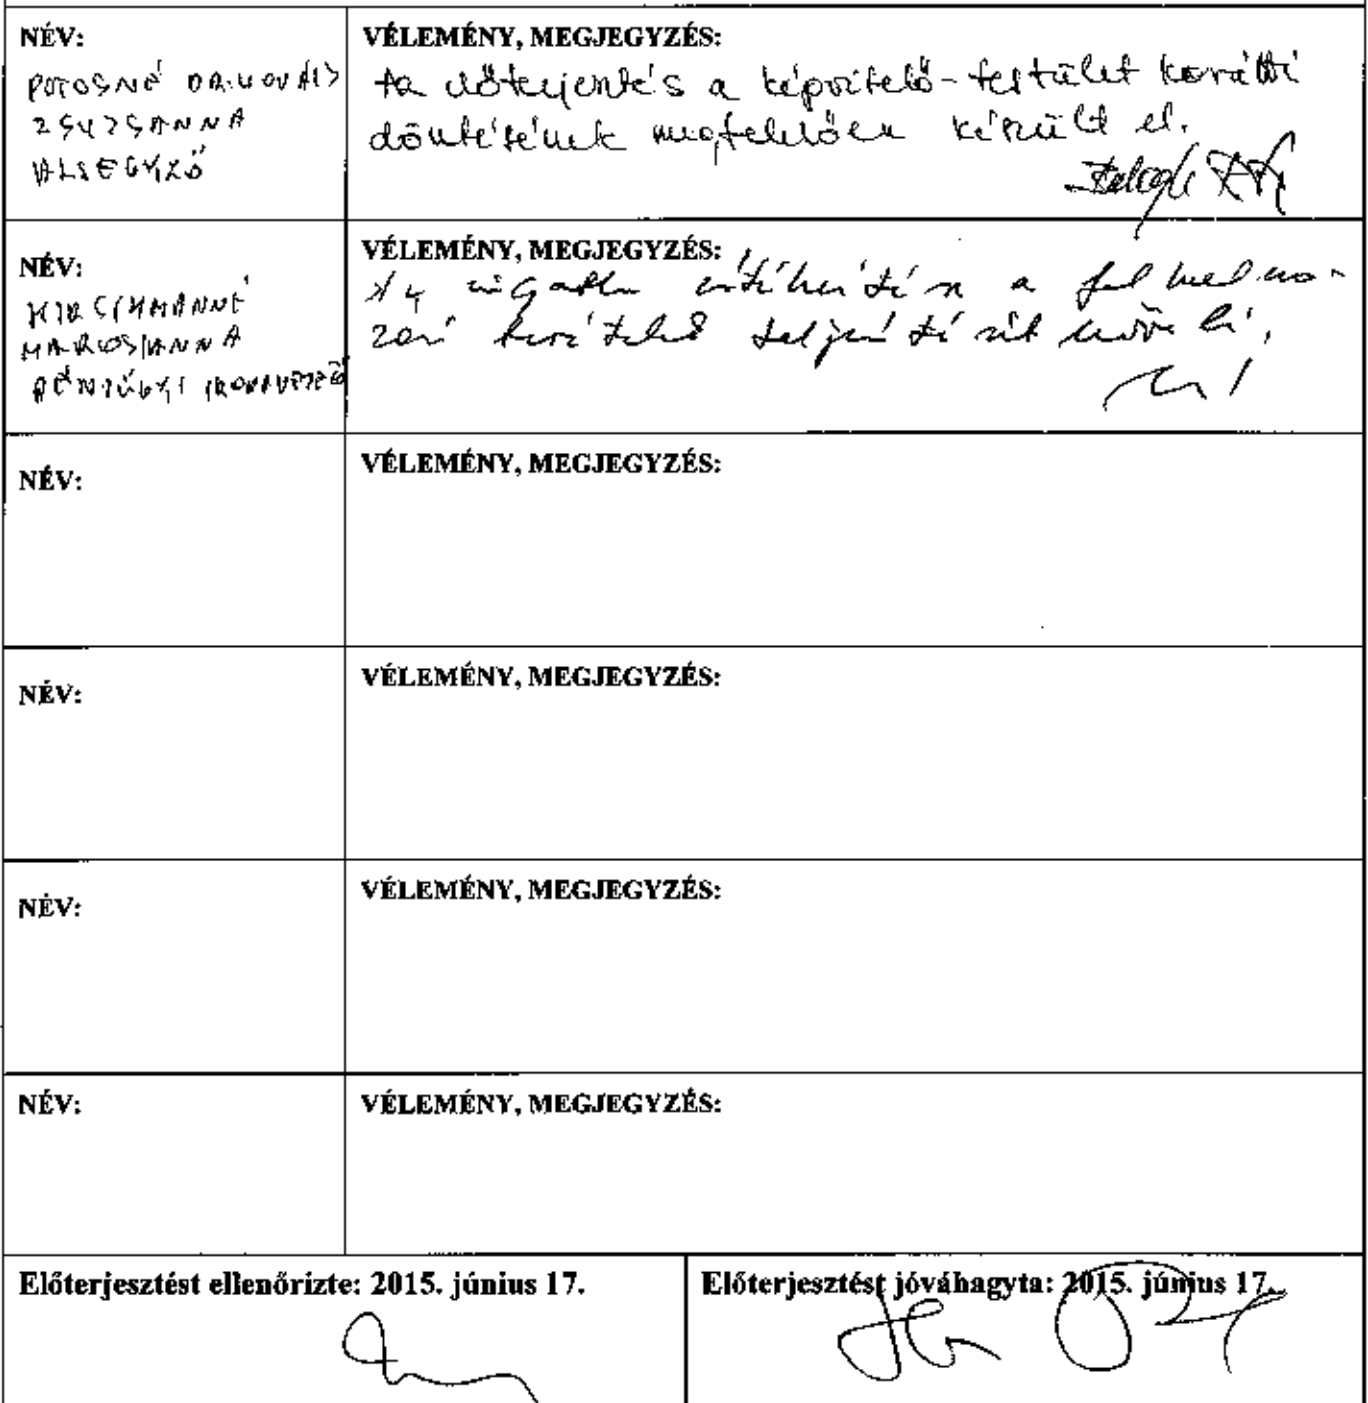 NÉV:
POTOSNÉ DR. KOVÁCS
ZSUZSANNA
ALJEGYZŐ
VÉLEMÉNY, MEGJEGYZÉS:
Az előterjesztés a képviselő-testület korábbi
döntésének megfelelően készült el.
NÉV:
KIRSCHMANNÉ
MAROS ANNA
PÉNZÜGYI IRODAVEZETŐ
VÉLEMÉNY, MEGJEGYZÉS:
Az ingatlan értékesítése a felhalmo-
zási bevételek teljesítését növeli.
NÉV:
VÉLEMÉNY, MEGJEGYZÉS:
NÉV:
VÉLEMÉNY, MEGJEGYZÉS:
NÉV:
VÉLEMÉNY, MEGJEGYZÉS:
NÉV:
VÉLEMÉNY, MEGJEGYZÉS:
Előterjesztést ellenőrizte: 2015. június 17.
Előterjesztést jóváhagyta: 2015. június 17.